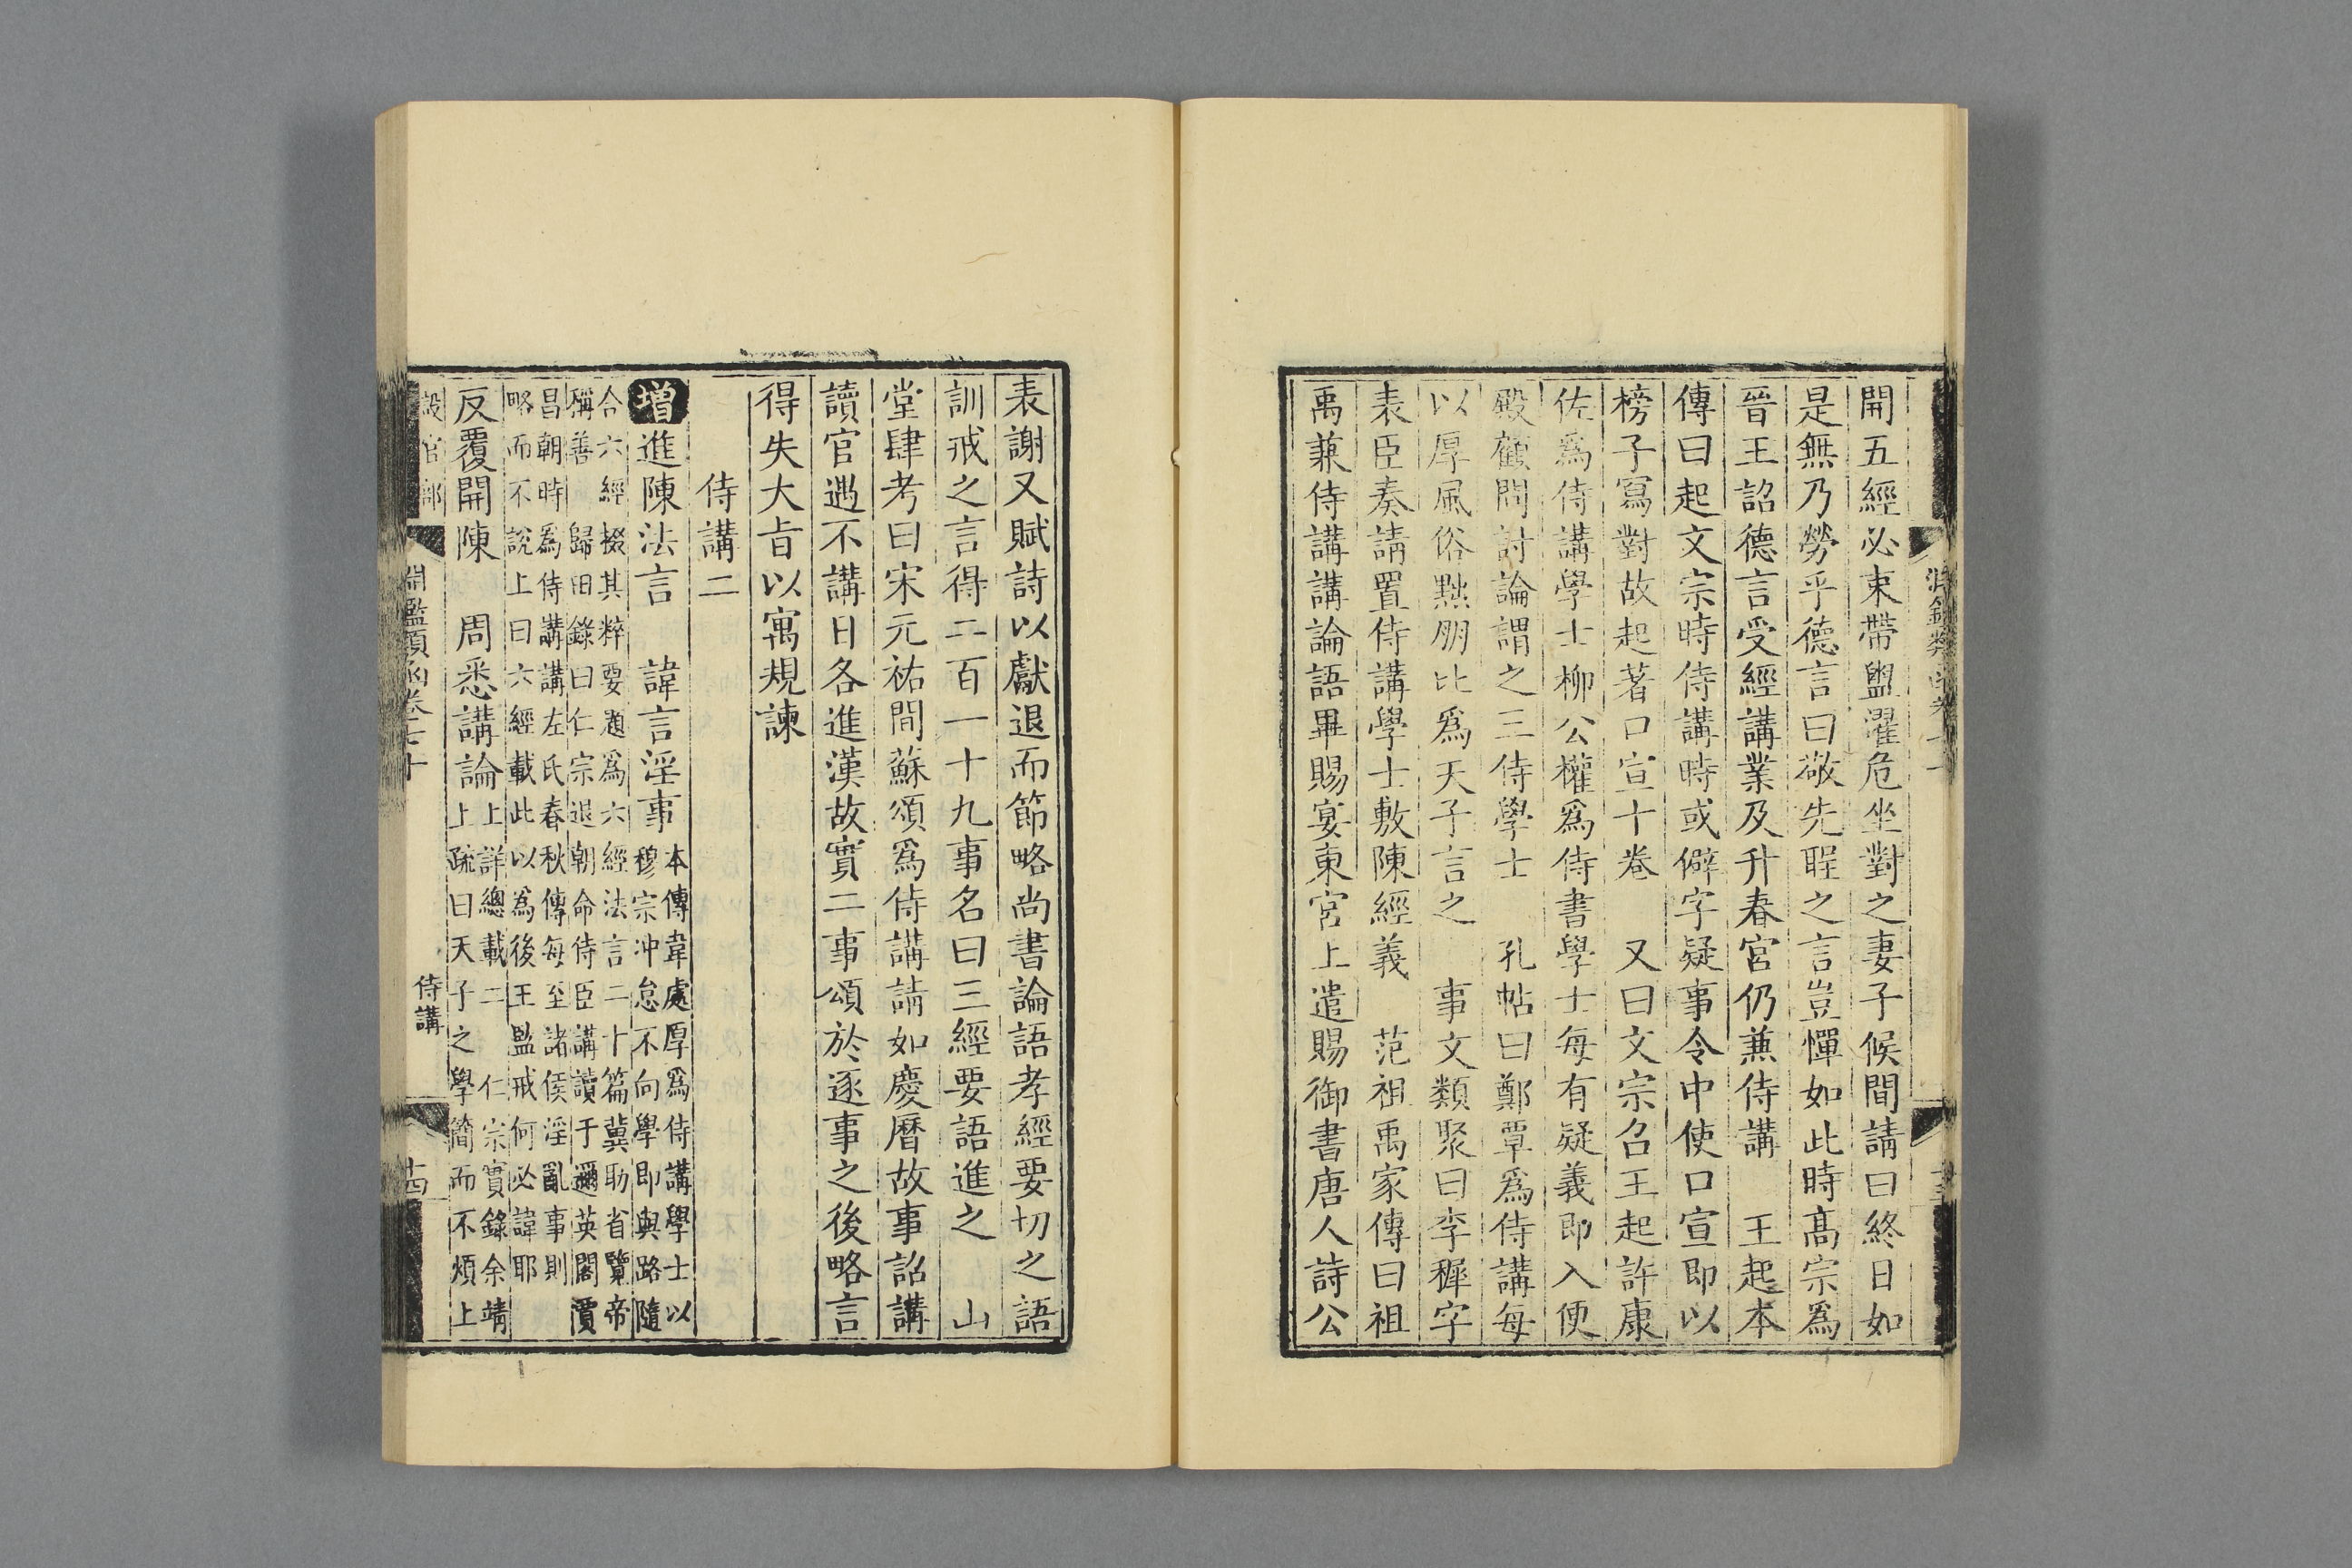 開五經必束帶盥濯危坐對之妻子候間請曰終日如
是無乃勞乎德言曰敬先聖之言豈憚如此時髙宗爲
晉王詔德言受經講業及升春宮仍兼侍講　王起本
傳曰起文宗時侍講時或僻字疑事令中使口宣即以
榜子寫對故起著口宣十卷　又曰文宗召王起許康
佐爲侍講學士柳公權爲侍書學士每有疑義即入便
殿顧問討論謂之三侍學士　孔帖曰鄭覃爲侍講每
以厚風俗黜朋比爲天子言之　事文類聚曰李穉字
表臣奏請置侍講學士敷陳經義　范祖禹家傳曰祖
禹兼侍講講論語畢賜宴東宮上遣賜御書唐人詩公
表謝又賦詩以獻退而節略尚書論語孝經要切之語
訓戒之言得二百一十九事名曰三經要語進之　山
堂肆考曰宋元祐間蘇頌爲侍講請如慶曆故事詔講
讀官遇不講日各進漢故實二事頌於逐事之後略言
得失大旨以寓規諫
侍講二
增進陳法言　諱言淫事本傳韋處厚爲侍講學士以
穆宗冲怠不向學即與路隨
合六經掇其粹要題爲六經法言二十篇冀助省覽帝
稱善　歸田錄曰仁宗退朝命侍臣講讀于邇英閣賈
昌朝時爲侍講講左氏春秋傳每至諸侯淫亂事則
略而不說上曰六經載此以爲後王監戒何必諱耶
反覆開陳　周悉講論上詳總載二　仁宗實錄余靖
上疏曰天子之學簡而不煩上
設官部
淵鑑類函卷七十
侍講
十四